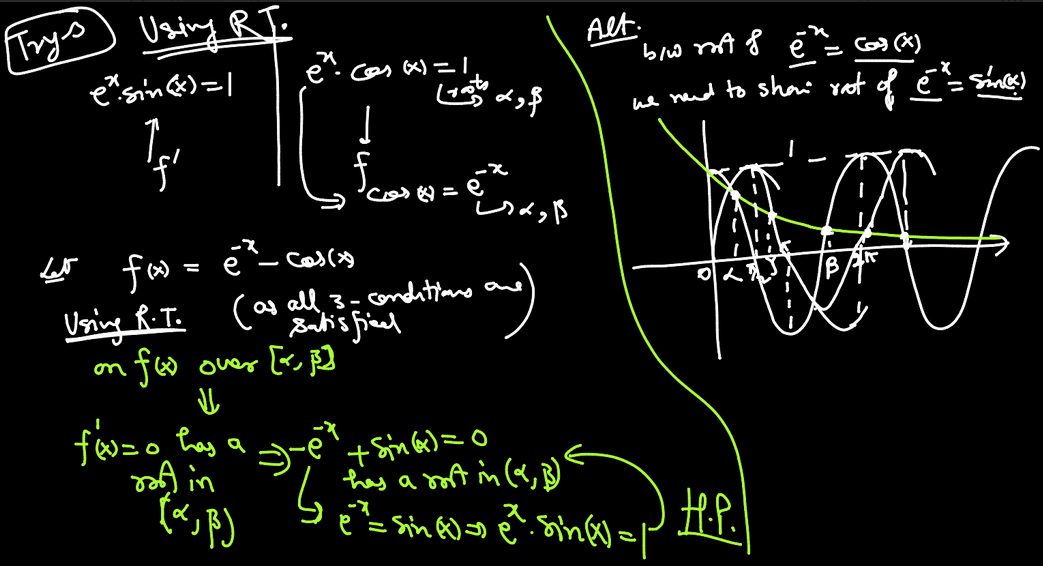 Try 5
Using R.T.
e^x·sin(x)=1
f'
e^x·cos(x)=1
→ roots α, β
f
cos(x) = e^-x
→ α, β
Let f(x) = e^-x - cos(x)
Using R.T. (as all 3-conditions are
satisfied)
on f(x) over [α, β]
⇓
f'(x)=0 has a
root in
(α, β)
⇒ -e^-x + sin(x) = 0
has a root in (α, β)
→ e^-x = sin(x) ⇒ e^x·sin(x) = 1
H.P.
Alt.
b/w root of e^-x = cos(x)
we need to show root of e^-x = sin(x)
1
0 α π/2 π β 2π